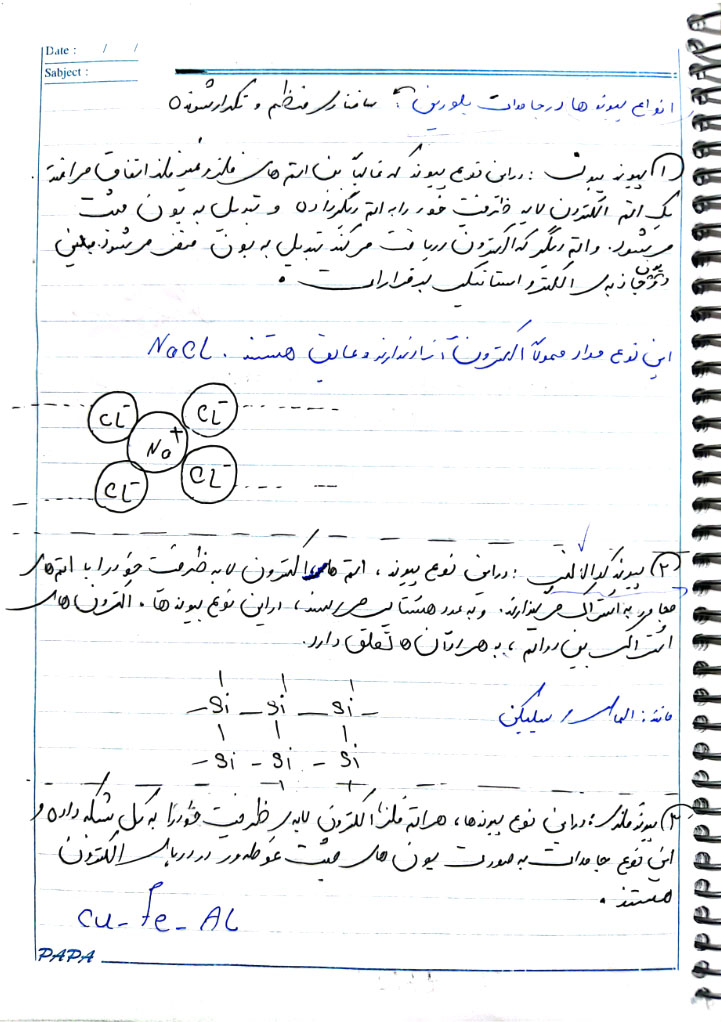 Date :     /     /
Sabject :
انواع پیوند ها در جامدات بلورین : ساختاری منظم و تکرار شونده
۱) پیوند یونی : در این نوع پیوند که غالباً بین اتم های فلز و غیر فلز اتفاق می افتد
یک اتم الکترون لایه ظرفیت خود را به اتم دیگر داده و تبدیل به یون مثبت
میشود. و اتم دیگر که الکترون دریافت می کند تبدیل به یون منفی می شود. بین این
دو یون جاذبه ی الکترو استاتیکی برقرار است .
این نوع مواد معمولاً الکترون آزاد ندارند و عایق هستند . NaCL
CL⁻ CL⁻
Na⁺
CL⁻ CL⁻
۲) پیوند کوالانسی : در این نوع پیوند ، اتم های الکترون لایه ظرفیت خود را با اتم های
مجاور به اشتراک می گذارند. و به عدد هشتایی می رسند ، در این نوع پیوند ها . الکترون های
اشتراکی بین دو اتم ، به هر دو آن ها تعلق دارد.
مانند : الماس / سیلیکن
– Si – Si – Si –
– Si – Si – Si
۳) پیوند فلزی : در این نوع پیوندها ، هر اتم فلز ، الکترون لایه ی ظرفیت خود را به کل شبکه داده و
این نوع جامدات به صورت یون های مثبت غوطه ور در دریای الکترون
هستند .
Cu – Fe – AL
PAPA